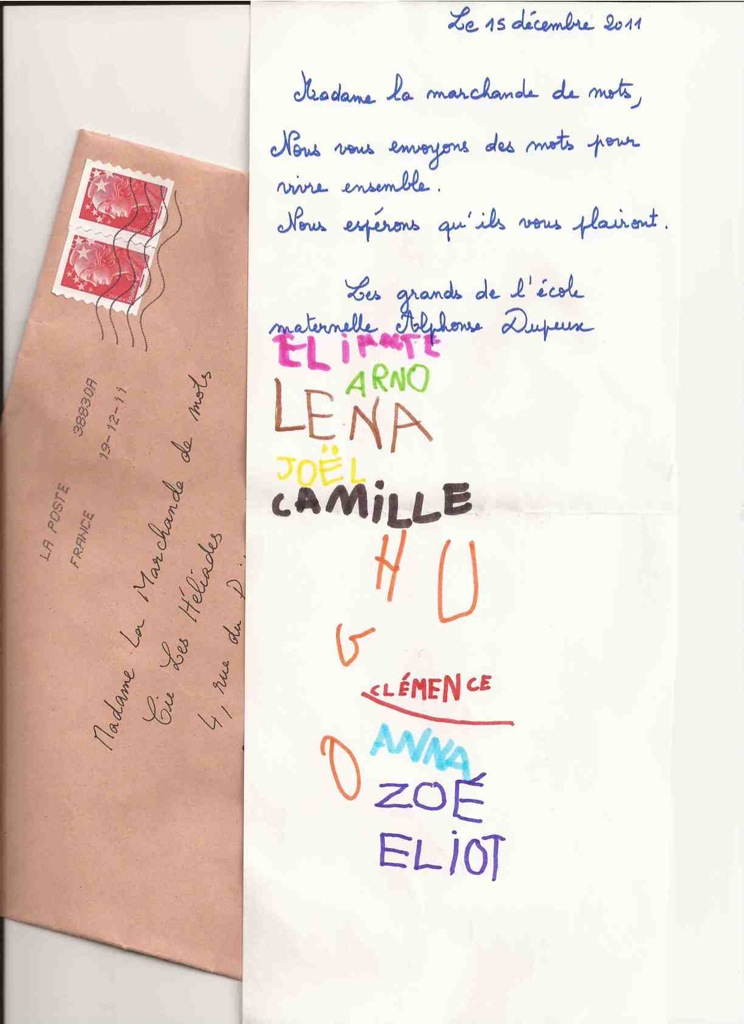 Le 15 décembre 2011
Madame la marchande de mots,
Nous vous envoyons des mots pour
vivre ensemble.
Nous espérons qu'ils vous plairont.
Les grands de l'école
maternelle Alphonse Dupeux
ELIANTE
ARNO
LENA
JOËL
CAMILLE
H U
G
O
CLÉMENCE
ANNA
ZOÉ
ELIOT
LA POSTE
38830A
FRANCE
19-12-11
Madame La Marchande de mots
Cie Les Héliades
4, rue du